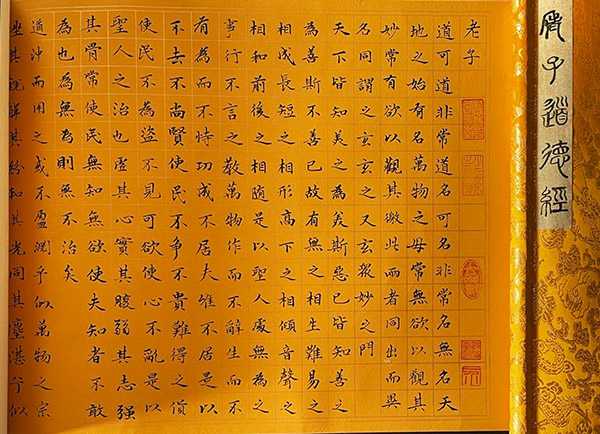 老子道德經
老子
道可道非常道名可名非常名無名天
地之始有名萬物之母常無欲以觀其
妙常有欲以觀其徼此兩者同出而異
名同謂之玄玄之又玄眾妙之門
天下皆知美之為美斯惡已皆知善之
為善斯不善已故有無之相生難易之
相成長短之相形高下之相傾音聲之
相和前後之相隨是以聖人處無為之
事行不言之教萬物作而不辭生而不
有為而不恃功成不居夫唯不居是以
不去不尚賢使民不爭不貴難得之貨
使民不為盜不見可欲使心不亂是以
聖人之治也虛其心實其腹弱其志強
其骨常使民無知無欲使夫知者不敢
為也為無為則無不治矣
道沖而用之或不盈淵乎似萬物之宗
挫其銳解其紛和其光同其塵湛兮似